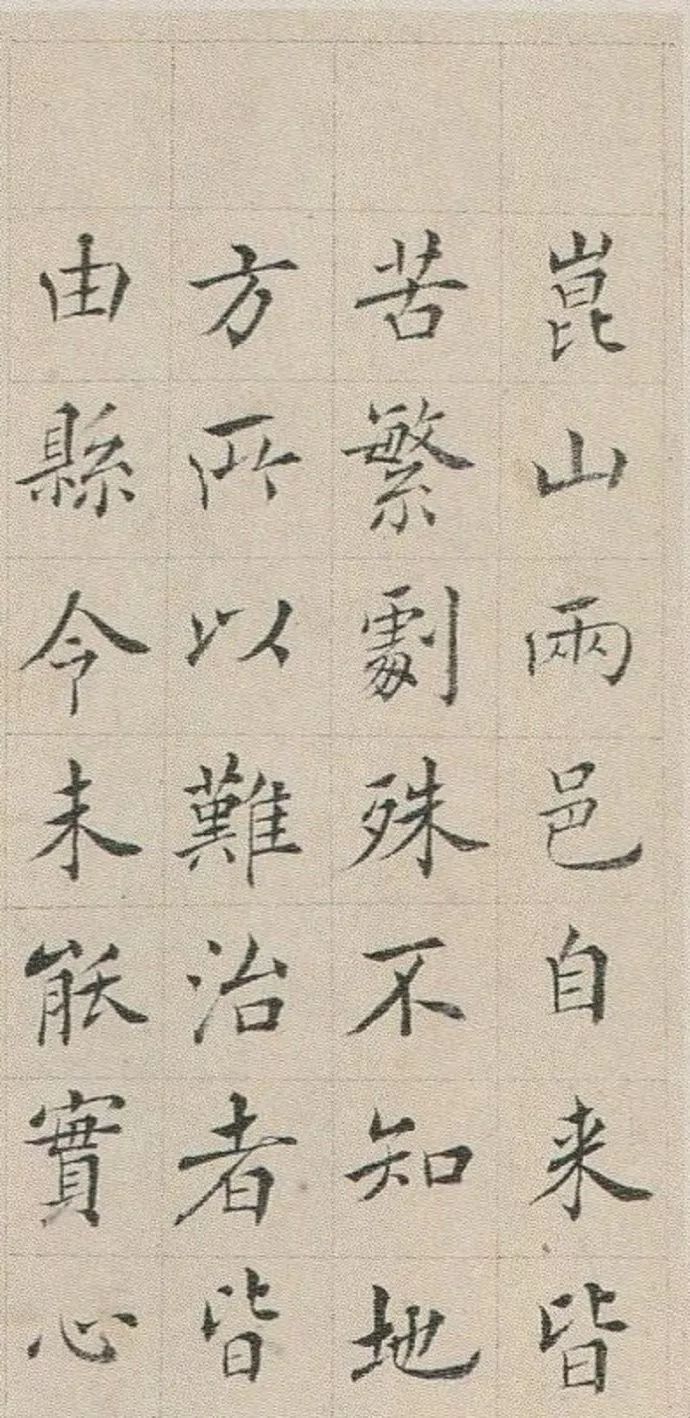 崑山兩邑自来皆
苦繁劇殊不知地
方所以難治者皆
由縣令未能實心